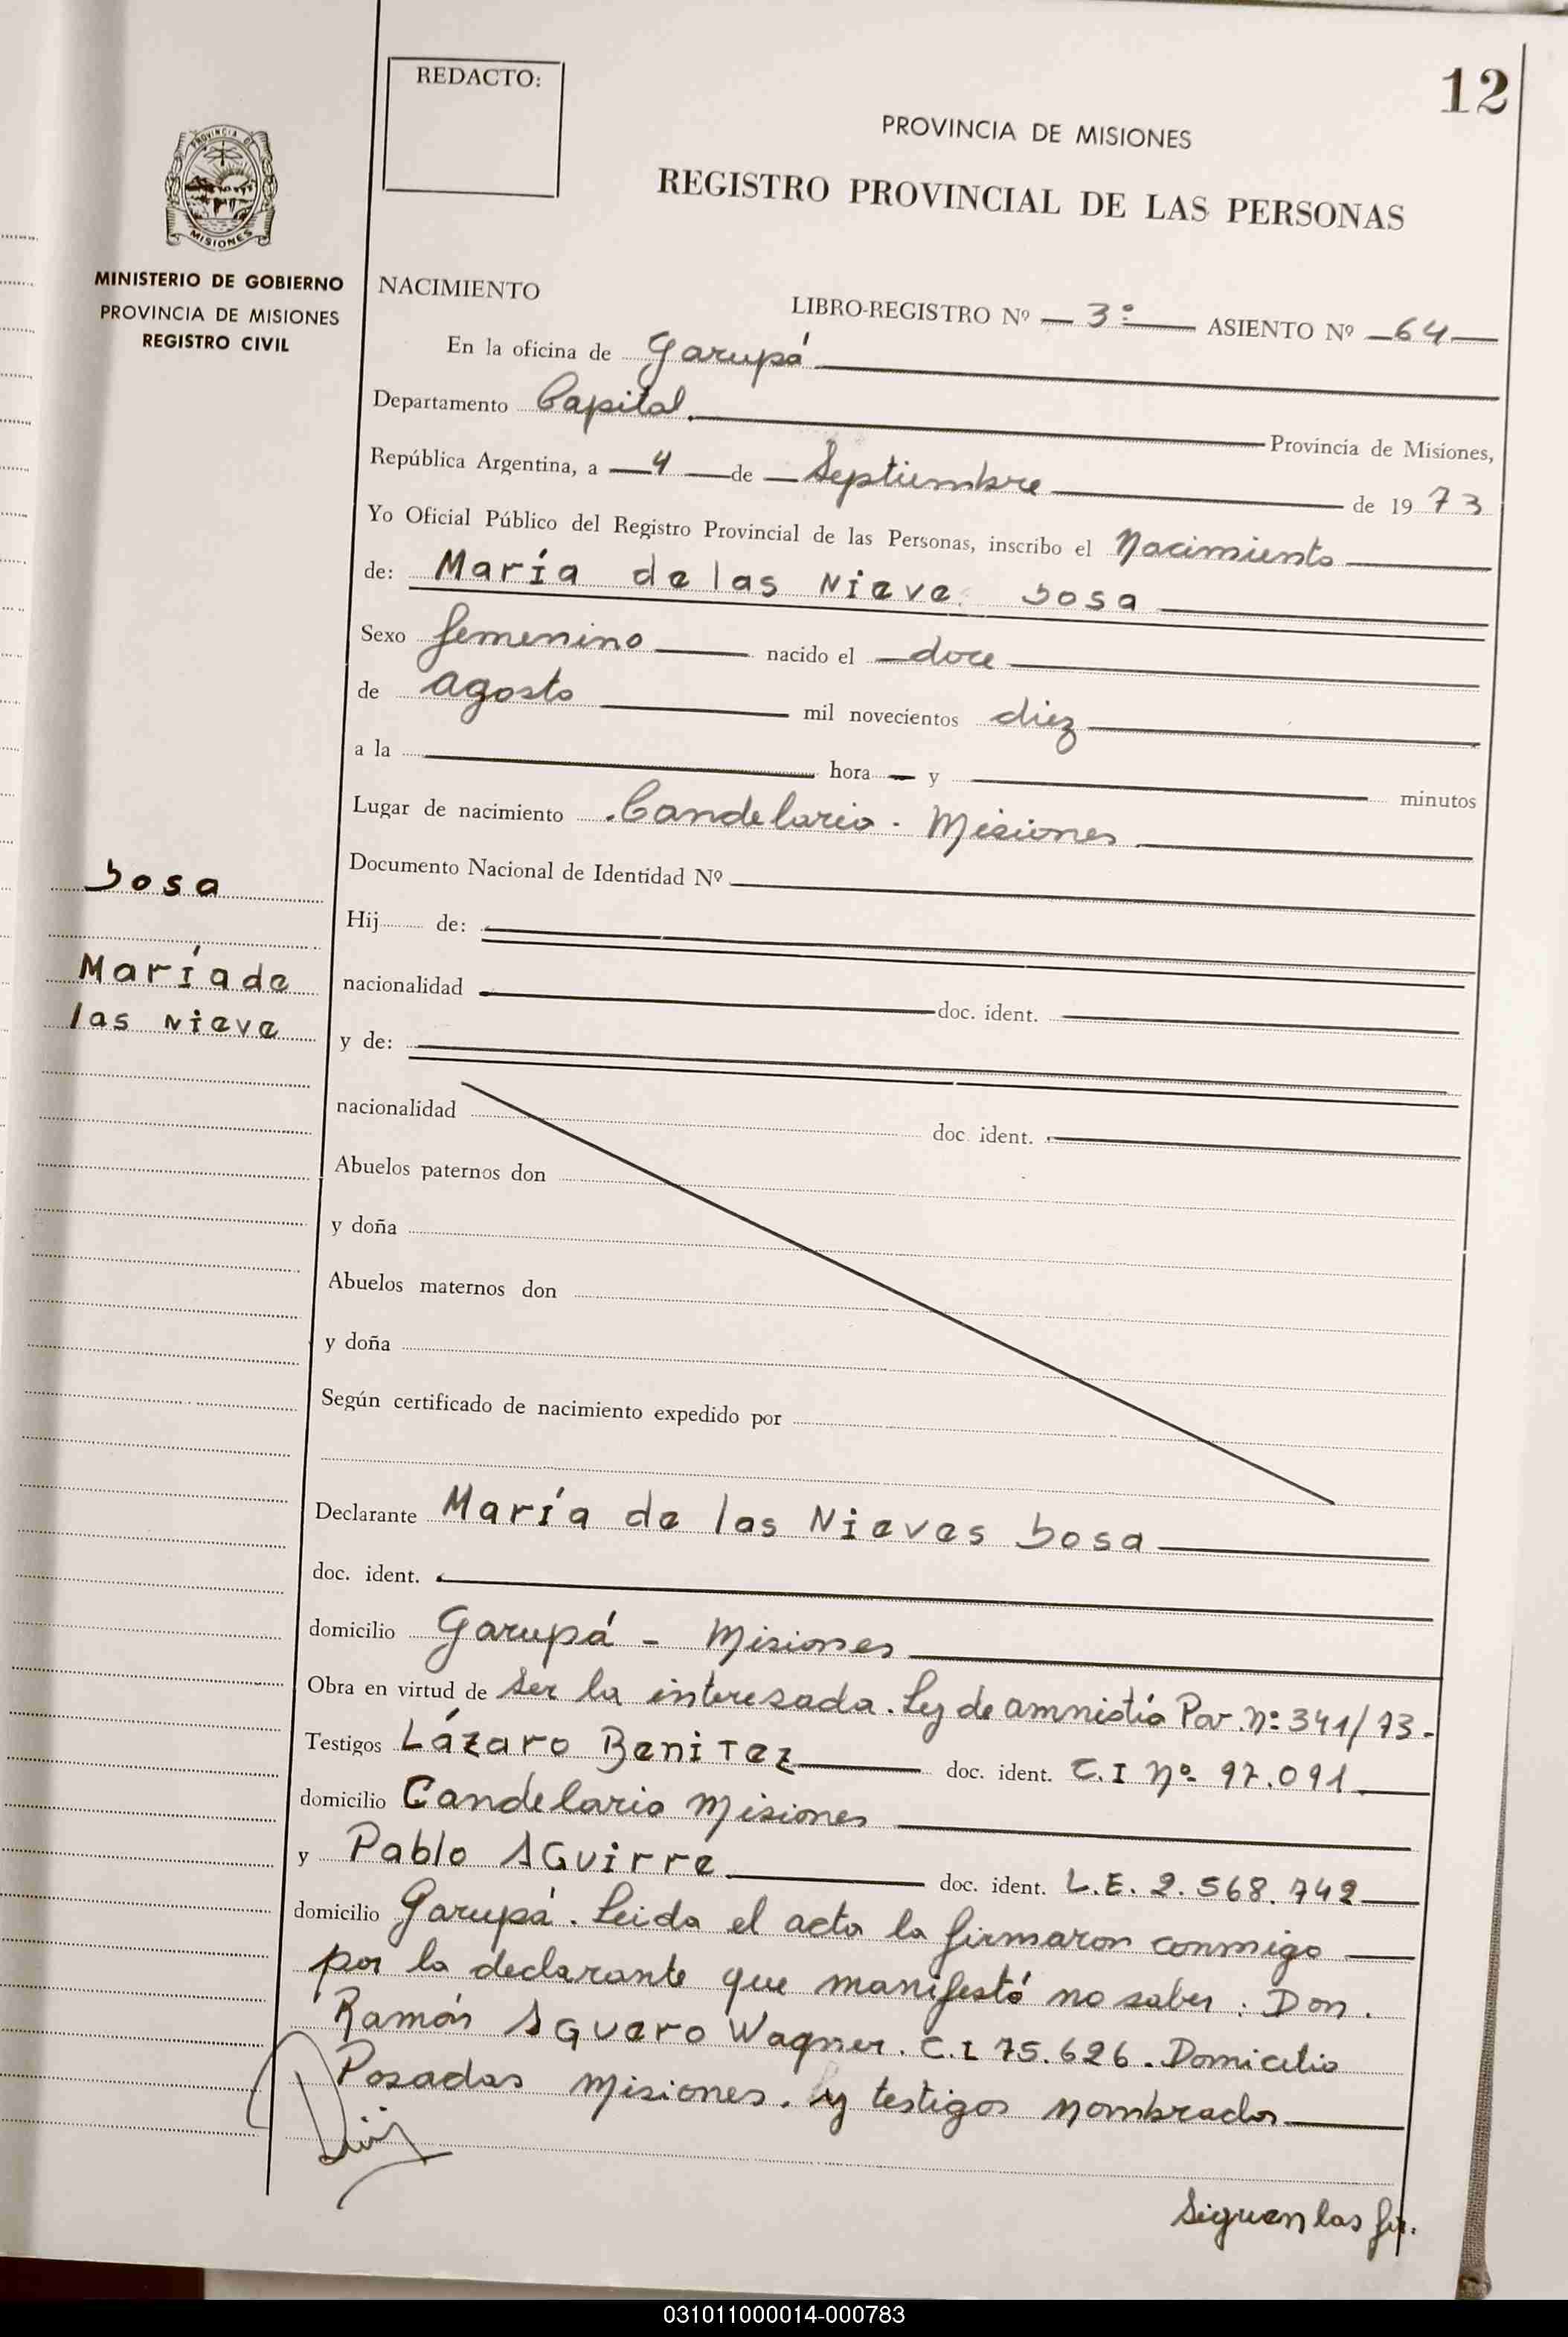 REDACTO:
12
PROVINCIA DE MISIONES
REGISTRO PROVINCIAL DE LAS PERSONAS
PROVINCIA DE
MISIONES
MINISTERIO DE GOBIERNO
PROVINCIA DE MISIONES
REGISTRO CIVIL
NACIMIENTO
LIBRO-REGISTRO Nº 3º ASIENTO Nº 64
En la oficina de Garupá
Departamento Capital. Provincia de Misiones,
República Argentina, a 4 de Septiembre de 1973
Yo Oficial Público del Registro Provincial de las Personas, inscribo el Nacimiento
de: María de las Nieve Sosa
Sexo femenino nacido el doce
de agosto mil novecientos diez
a la hora y minutos
Lugar de nacimiento Candelaria - Misiones
Documento Nacional de Identidad Nº
Hij de:
nacionalidad doc. ident.
y de:
nacionalidad doc. ident.
Abuelos paternos don
y doña
Abuelos maternos don
y doña
Según certificado de nacimiento expedido por
Sosa
María de
las Nieve
Declarante María de las Nieves Sosa
doc. ident.
domicilio Garupá - Misiones
Obra en virtud de ser la interesada. Ley de amnistía Par. Nº 341/73-
Testigos Lázaro Benitez doc. ident. C.I Nº 97.091
domicilio Candelaria Misiones
y Pablo Aguirre doc. ident. L.E. 2.568.742
domicilio Garupá. Leida el acta la firmaron conmigo
por la declarante que manifestó no saber: Don.
Ramón Aguero Wagner. C.I 75.626. Domicilio
Posadas Misiones. y testigos nombrados
Siguen las fir.
031011000014-000783